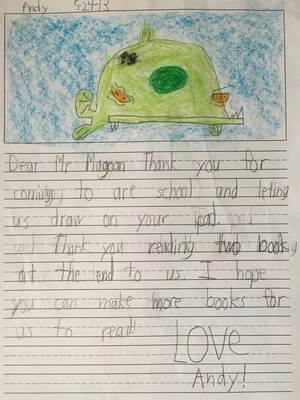 Andy 5-24-13
Dear Mr Magnon Thank you for
coming to are school and leting
us draw on your ipad.
Thank you reading two books
at the end to us. I hope
you can make more books for
us to read!
Love
Andy!